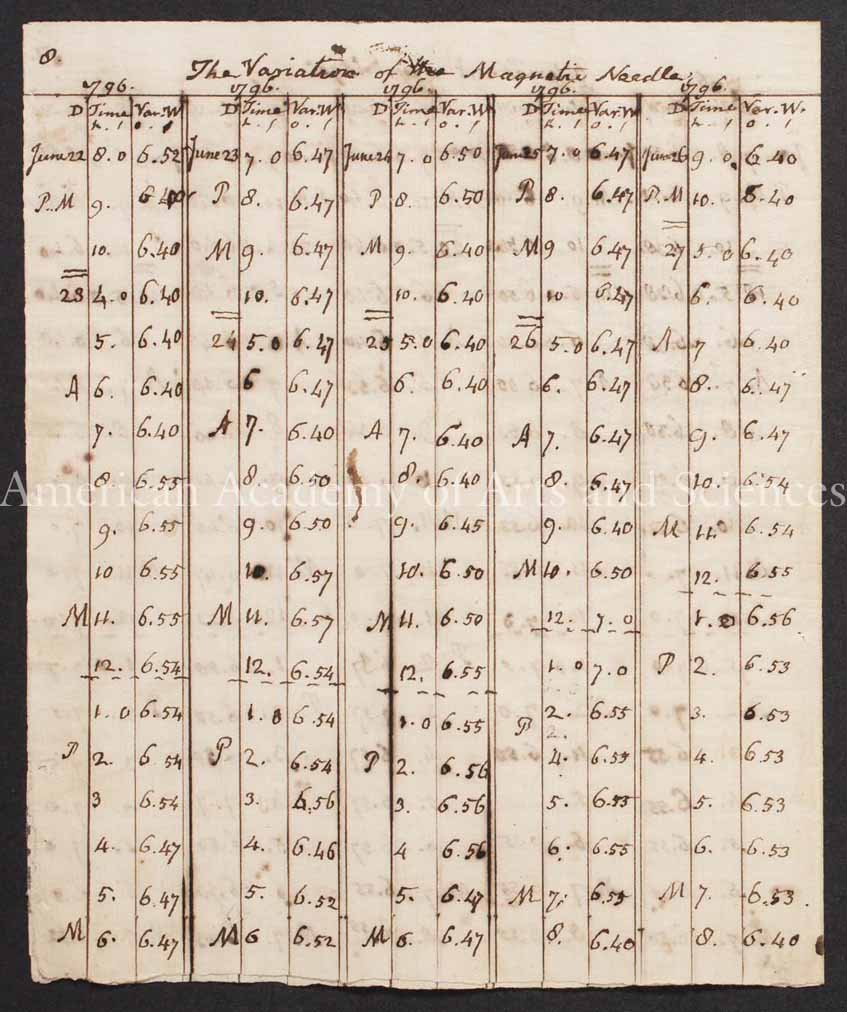 8.
The Variation of the Magnetic Needle.
1796. 1796. 1796. 1796. 1796.
D Time Var.W D Time Var.W D Time Var.W D Time Var.W D Time Var.W.
h. ′ o. ′ h. ′ o. ′ h. ′ o. ′ h. ′ o. ′ h. ′ o. ′
June 22 8.0 6.52 June 23 7.0 6.47 June 24 7.0 6.50 June 25 7.0 6.47 June 26 9.0 6.40
P.M 9. 6.40 P 8. 6.47 P 8. 6.50 P. 8. 6.47 P.M 10. 6.40
10. 6.40 M 9. 6.47 M 9. 6.40 M 9 6.47 27 5.0 6.40
23 4.0 6.40 10. 6.47 10. 6.40 10 6.47 6. 6.40
5. 6.40 24 5.0 6.47 25 5.0 6.40 26 5.0 6.47 A 7 6.40
A 6. 6.40 6 6.47 6. 6.40 6. 6.47 8. 6.47
7. 6.40 A 7. 6.40 A 7. 6.40 A 7. 6.47 9. 6.47
8. 6.55 8. 6.50 8. 6.40 8. 6.47 10. 6.54
American Academy of Arts and Sciences
9. 6.55 9. 6.50 9. 6.45 9. 6.40 M 11. 6.54
10 6.55 10. 6.57 10. 6.50 M 10. 6.50 12. 6.55
M 11. 6.55 M 11. 6.57 M 11. 6.50 12. 7.0 1.0 6.56
12. 6.54 12. 6.54 12. 6.55 1.0 7.0 P 2. 6.53
1.0 6.54 1.0 6.54 1.0 6.55 P 2. 6.55 3. 6.53
P 2. 6.54 P 2. 6.54 P 2. 6.56 4. 6.55 4. 6.53
3 6.54 3. 6.56 3. 6.56 5. 6.55 5. 6.53
4. 6.47 4. 6.46 4 6.56 6. 6.55 6. 6.53
5. 6.47 5. 6.52 5. 6.47 M 7. 6.55 M 7. 6.53
M 6. 6.47 M 6 6.52 M 6. 6.47 8. 6.40 8. 6.40